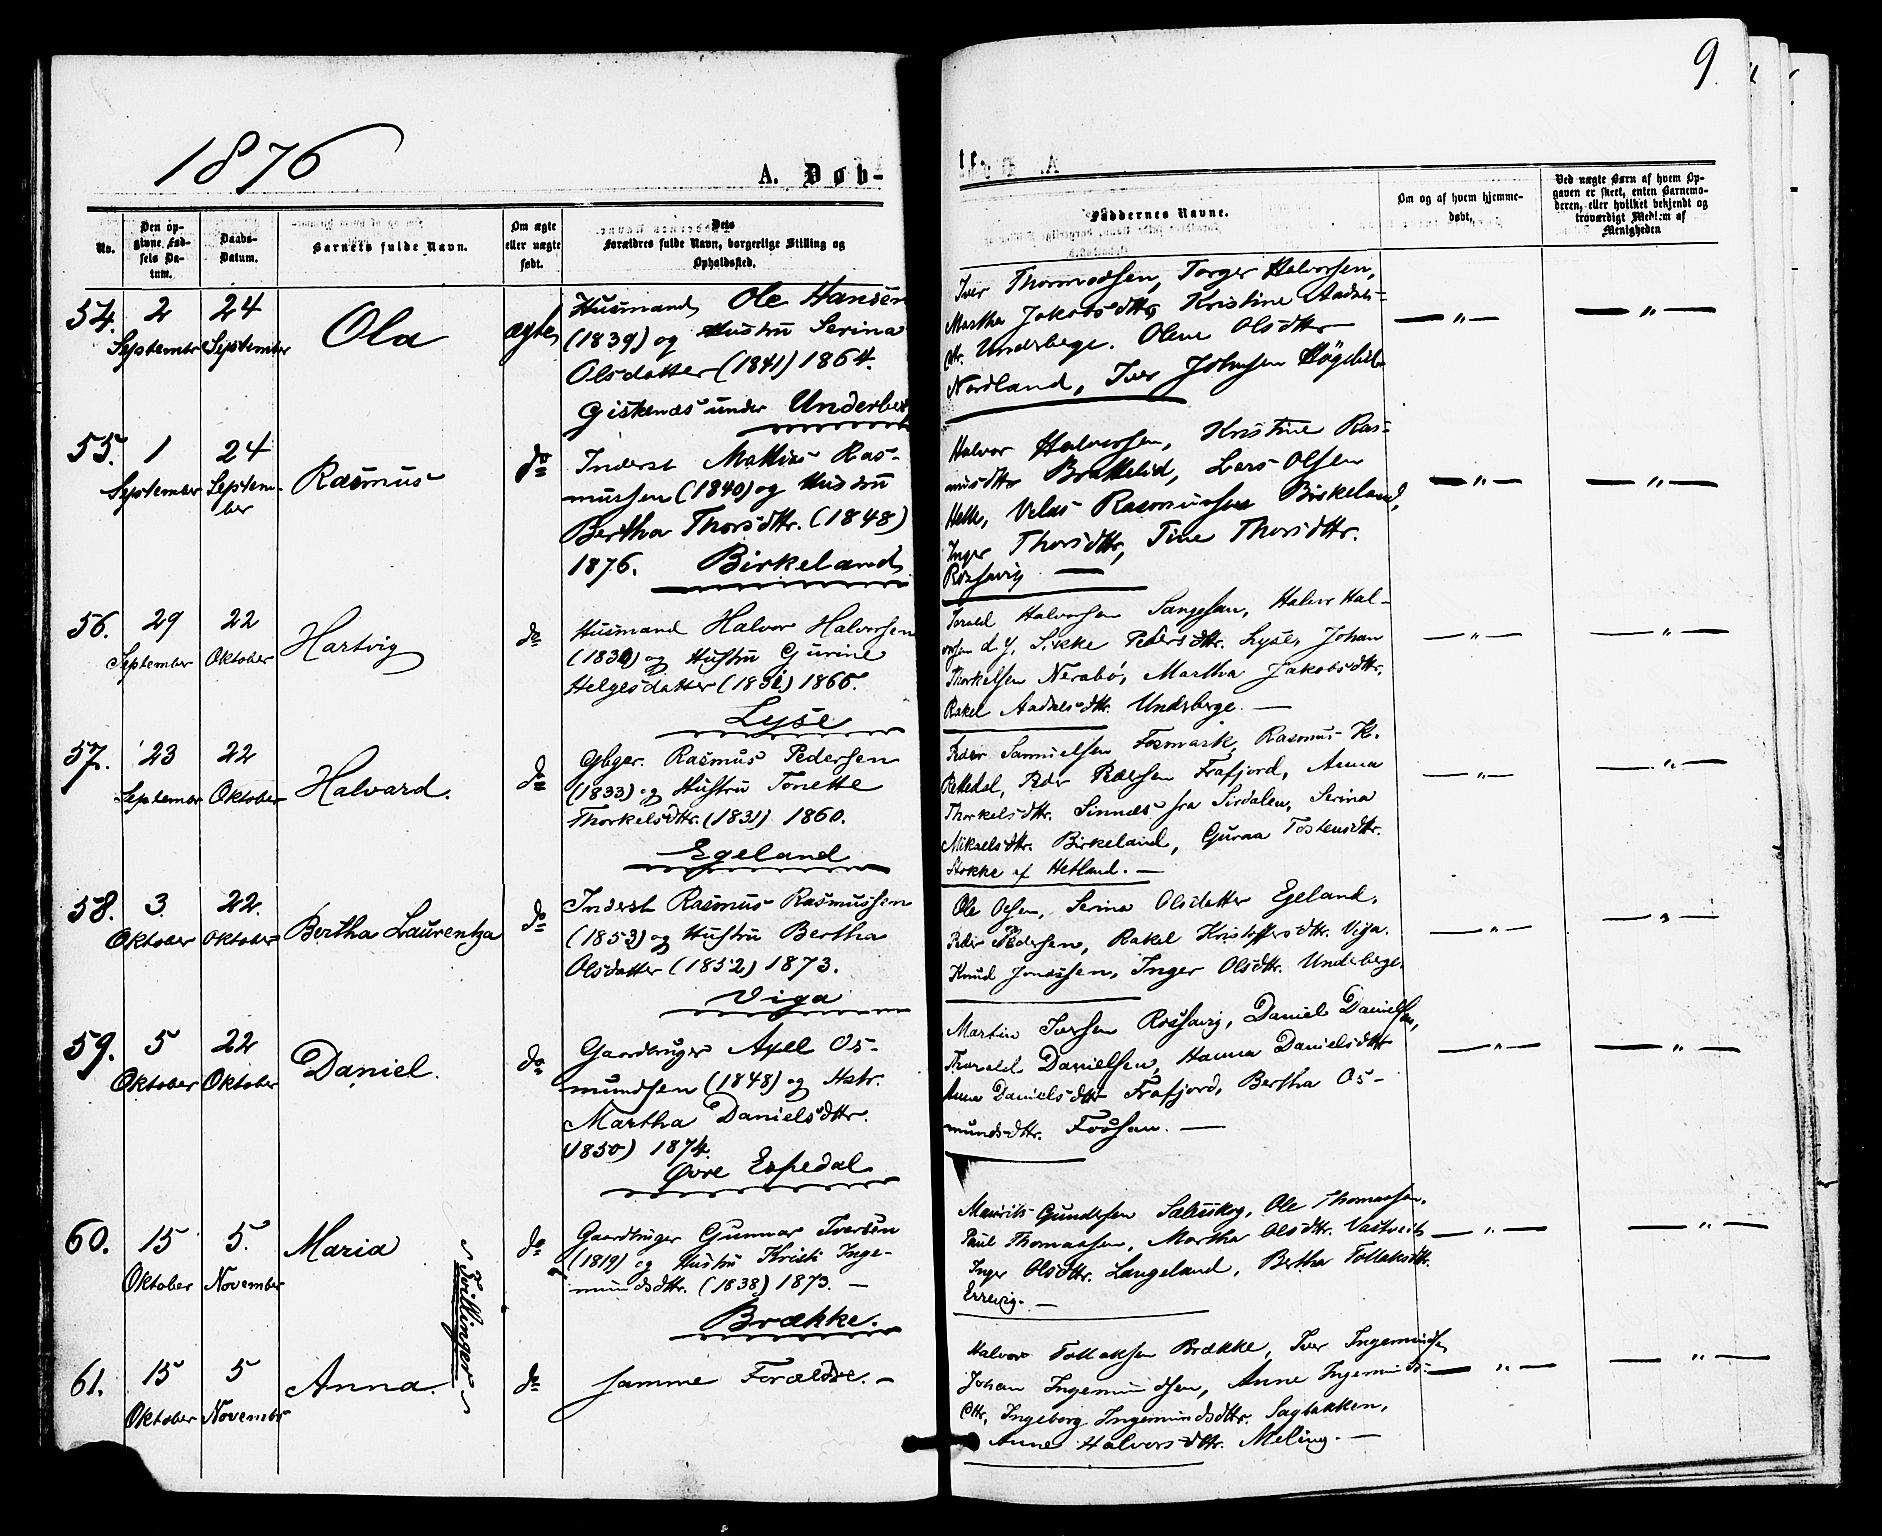 1876
9.
A. Døb-
te.
No.
Den op-
givne Fød-
sels Da-
tum.
Daabs-
Datum.
Barnets fulde Navn.
Om ægte
eller uægte
født.
Dets
Forældres fulde Navn, borgerlige Stilling og
Opholdssted.
Faddernes Navne.
Om og af hvem hjemme-
døbt,
Ved uægte Børn af hvem Op-
gaven er skeet, enten Barnemo-
deren, eller hvilket bekjendt og
troværdigt Medlem af
Menigheden
54.
2
September
24
September
Ola
ægte
Husmand Ole Hansen
(1839) og Hustru Serina
Olsdatter (1841) 1864.
Giskenæs under Underberg
Iver Thormodsen, Torger Halvorsen,
Martha Jakobsdtr, Kristine Aadnes-
dtr. Underberge. Olene Olsdtr
Nordland, Iver Johnsen
— " —
— " —
55.
1
September
24
Septem-
ber
Rasmus
do
Inderst Mathias Ras-
mussen (1840) og Hustru
Bertha Thorsdtr. (1848)
1876. Birkeland
Halvor Halvorsen, Kristine Ras-
musdtr Brekkelid, Lars Olsen
Helle, Rasmussen Birkeland,
Inger Thorsdtr, Tine Thorsdtr.
Rossavig —
— " —
— " —
56.
29
September
22
Oktober
Hartvig
do
Husmand Halvor Halvorsen
og Hustru Gurine
Helgesdatter 1866.
Lyse
Halvorsen Sangesan, Halvor Hal-
vorsen d. y. Sikke Pedersdtr. Lyse, Johan
Thorkelsen Nerabø, Martha Jakobsdtr.
Rakel Aadnesdtr. Underberge. —
— " —
— " —
57.
23
September
22
Oktober
Halvard.
do
Gbger. Rasmus Pedersen
(1833) og Hustru Tonette
Thorkelsdtr. (1831) 1860.
Egeland
Peder Samuelsen Fosmark, Rasmus K.
Peder Pedersen Frafjord, Anna
Thorkelsdtr. Sinnæs fra Sirdalen, Serina
Mikaelsdtr. Birkeland, Guraa Tostensdtr.
Stokke af Hetland. —
— " —
— " —
58.
3.
Oktober
22.
Oktober
Bertha Laurentza
do
Inderst Rasmus Rasmussen
(1852) og Hustru Bertha
Olsdatter (1852) 1873.
Viga
Ole Olsen, Serina Olsdatter Egeland,
Peder Pedersen, Rakel Kristoffersdtr. Viga.
Knud Jonassen, Inger Olsdtr. Underberge.
— " —
— " —
59.
5
Oktober
22
Oktober
Daniel.
do
Gaardbruger Axel Os-
mundsen (1848) og Hstr.
Martha Danielsdtr.
(1850) 1874.
Øvre Espedal
Martin Iversen Rossavig, Daniel Danielsen,
Thorald Danielsen, Hanna Danielsdtr
Anna Danielsdtr Frafjord, Bertha Os-
mundsdtr. Fossan. —
— " —
— " —
60.
15
Oktober
5.
November
Maria
Tvillinger
do
Gaardbruger Gunnar Iversen
(1819) og Hustru Kristi Inge-
mundsdtr. (1838) 1873. —
Brække.
Maurits Gundersen Ole Thomassen,
Paul Thomassen, Martha Olsdtr. Vastveit
Inger Olsdtr. Langeland, Bertha Tollaksdtr.
Errevig. —
— " —
— " —
61.
15
Oktober
5
November
Anna.
do
Samme Forældre. —
Halvor Tollaksen Brække, Iver Ingemundsen
Johan Ingemundsen, Anne Ingemunds-
dtr, Ingeborg Ingemundsdtr. Sagbakken,
Anne Halvorsdtr. Meling. —
— " —
— " —